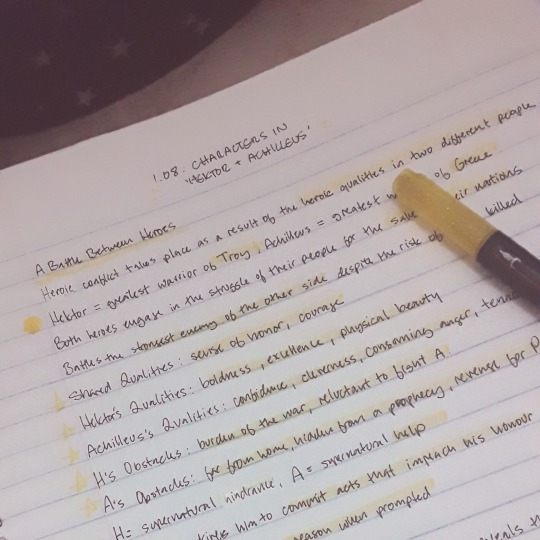 1.08: CHARACTERS IN
'HEKTOR + ACHILLEUS'
A Battle Between Heroes
Heroic conflict takes place as a result of the heroic qualities in two different people
Hektor = greatest warrior of Troy, Achilleus = greatest w of Greece
Both heroes engage in the struggle of their people for the sake eir nations
Battles the strongest enemy of the other side despite the risk of killed
Shared Qualities: sense of honor, courage
Hektor's Qualities: boldness, excellence, physical beauty
Achilleus's Qualities: confidence, cleverness, consuming anger,
H's Obstacles: burden of the war, reluctant to fight A.
A's Obstacles: far from home, from a prophecy, revenge for P
H = supernatural hindrance, A = supernatural help
him to commit acts that impeach his honour
eason when prompted